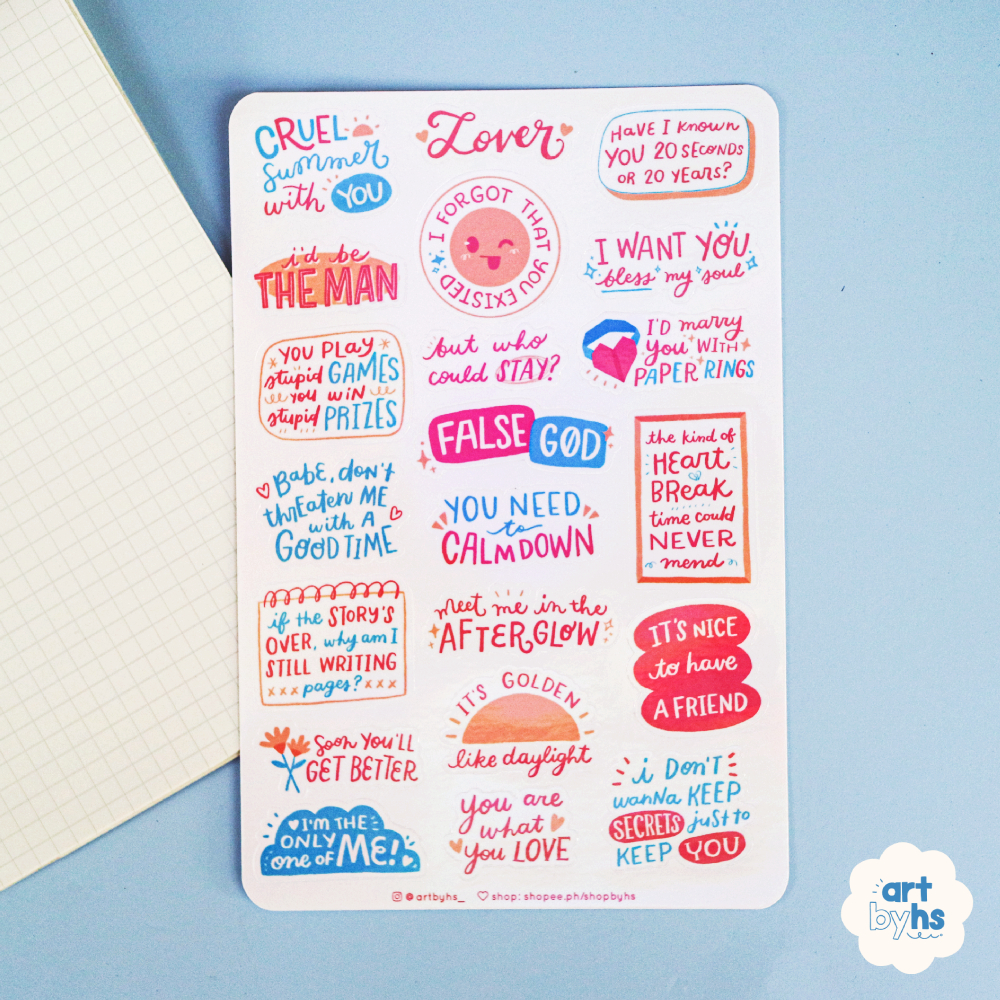 CRUEL
summer
with YOU
Lover
HAVE I KNOWN
YOU 20 SECONDS
OR 20 YEARS?
i'd be
THE MAN
I FORGOT THAT YOU EXISTED
I WANT YOU
bless my soul
YOU PLAY
stupid GAMES
you WIN
stupid PRIZES
but who
could STAY?
I'D marry
you WITH
PAPER RINGS
FALSE GOD
the kind of
HEart
BReak
time could
NEVER
mend
Babe, don't
thrEaten ME
with A
GOOD TIME
YOU NEED
to
CALM DOWN
if the STORY'S
OVER, why am I
STILL WRITING
xxx pages? xxx
meet me in the
AFTERGLOW
IT'S NICE
to have
A FRIEND
IT'S GOLDEN
like daylight
Soon YOU'LL
GET BETTER
I'M THE
ONLY
one of ME!
you are
what
you LOVE
i DON'T
wanna KEEP
SECRETS just to
KEEP YOU
artbyhs_ shop: shopee.ph/shopbyhs
art
byhs